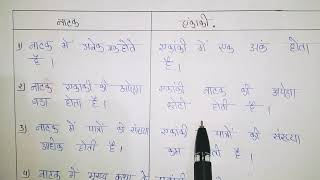 नाटक एकांकी.
1) नाटक में अनेक अंक होते हैं। एकांकी में एक अंक होता है।
2) नाटक एकांकी की अपेक्षा बड़ा होता है। एकांकी नाटक की अपेक्षा छोटी होती है।
3) नाटक में पात्रों की संख्या अधिक होती है। एकांकी पात्रों की संख्या कम होती है।
4) नाटक में मुख्य कथा के